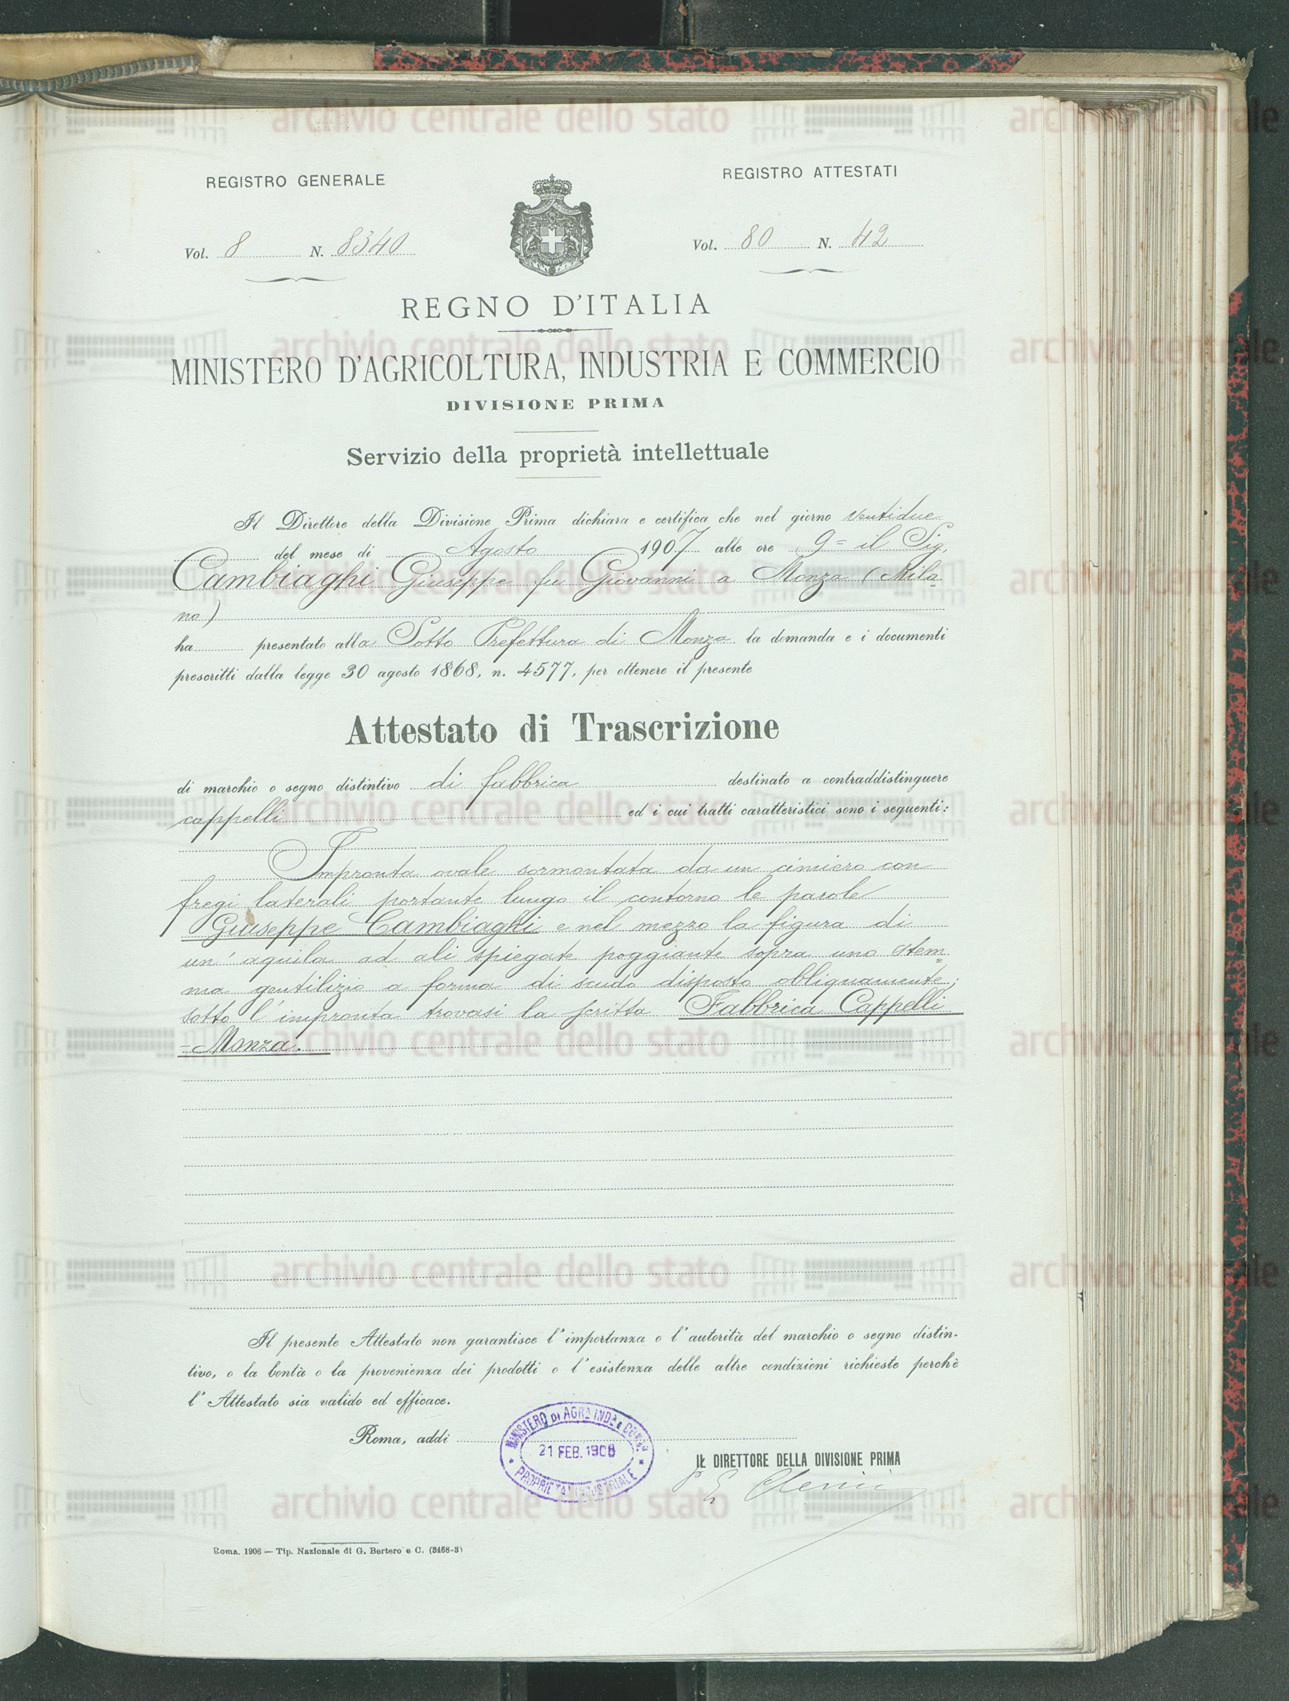 REGISTRO GENERALE
REGISTRO ATTESTATI
Vol. 8 N. 8340
Vol. 80 N. 42
REGNO D'ITALIA
MINISTERO D'AGRICOLTURA, INDUSTRIA E COMMERCIO
DIVISIONE PRIMA
Servizio della proprietà intellettuale
Il Direttore della Divisione Prima dichiara e certifica che nel giorno ventidue
del mese di Agosto 1907 alle ore 9 = il Sig.
Cambiaghi Giuseppe fu Giovanni a Monza (Mila
no)
ha presentato alla Sotto Prefettura di Monza la domanda e i documenti
prescritti dalla legge 30 agosto 1868, n. 4577, per ottenere il presente
Attestato di Trascrizione
di marchio o segno distintivo di fabbrica destinato a contraddistinguere
cappelli ed i cui tratti caratteristici sono i seguenti:
Impronta ovale sormontata da un cimiero con
fregi laterali portante lungo il contorno le parole
Giuseppe Cambiaghi e nel mezzo la figura di
un'aquila ad ali spiegate poggiante sopra uno stem=
ma gentilizio a forma di scudo disposto obliquamente;
sotto l'impronta trovasi la scritta Fabbrica Cappelli
=Monza.
Il presente Attestato non garantisce l'importanza o l'autorità del marchio o segno distin-
tivo, o la bontà o la provenienza dei prodotti o l'esistenza delle altre condizioni richieste perchè
l'Attestato sia valido ed efficace.
Roma, addì
MINISTERO DI AGR. IND. E COMM.
21 FEB. 1908
PROPRIETÀ INDUSTRIALE
IL DIRETTORE DELLA DIVISIONE PRIMA
Roma, 1906 — Tip. Nazionale di G. Bertero e C. (3468-3)
archivio centrale dello stato